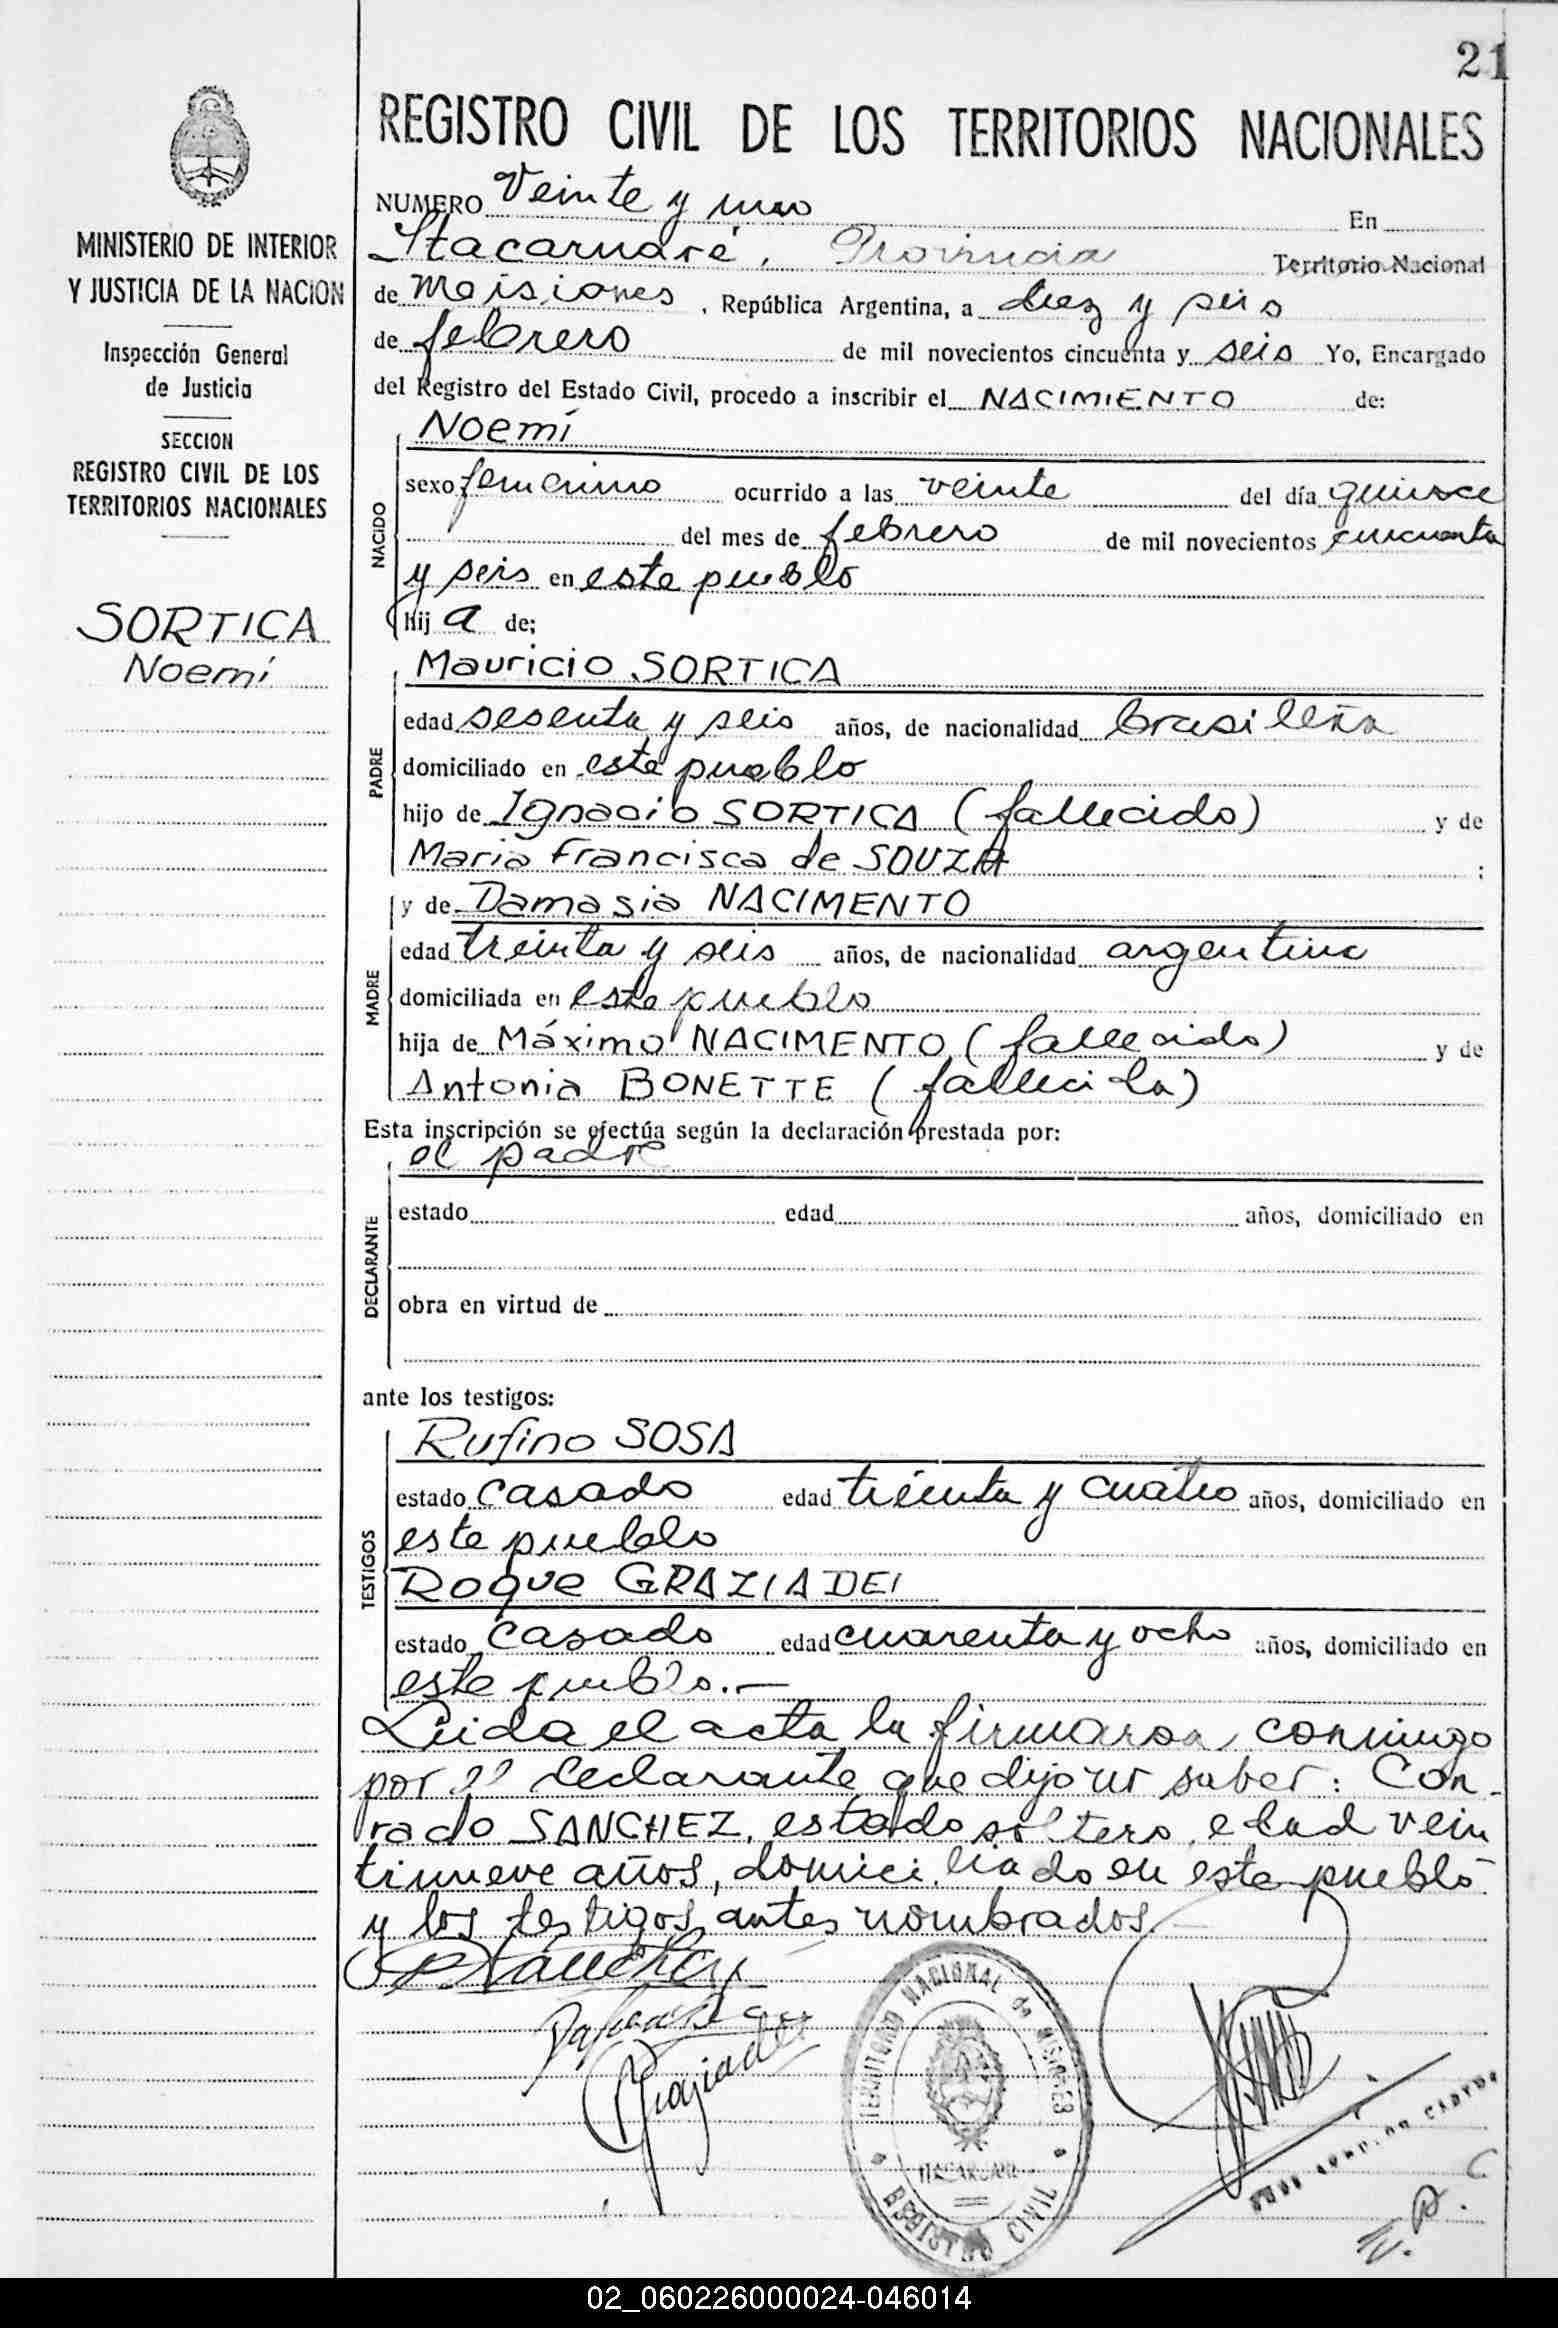 21
REGISTRO CIVIL DE LOS TERRITORIOS NACIONALES
MINISTERIO DE INTERIOR
Y JUSTICIA DE LA NACION
Inspección General
de Justicia
SECCION
REGISTRO CIVIL DE LOS
TERRITORIOS NACIONALES
SORTICA
Noemí
NUMERO Veinte y uno En
Itacaruaré, Provincia Territorio Nacional
de Misiones, República Argentina, a diez y seis
de febrero de mil novecientos cincuenta y seis Yo, Encargado
del Registro del Estado Civil, procedo a inscribir el NACIMIENTO de:
NACIDO
Noemí
sexo femenino ocurrido a las veinte del día quince
del mes de febrero de mil novecientos cincuenta
y seis en este pueblo
hij a de;
PADRE
Mauricio SORTICA
edad sesenta y seis años, de nacionalidad brasileña
domiciliado en este pueblo
hijo de Ignacio SORTICA (fallecido) y de
Maria Francisca de SOUZA ;
MADRE
y de Damasia NACIMENTO
edad treinta y seis años, de nacionalidad argentina
domiciliada en este pueblo
hija de Máximo NACIMENTO (fallecido) y de
Antonia BONETTE (fallecida)
Esta inscripción se efectúa según la declaración prestada por:
DECLARANTE
el padre
estado edad años, domiciliado en
obra en virtud de
ante los testigos:
TESTIGOS
Rufino SOSA
estado casado edad treinta y cuatro años, domiciliado en
este pueblo
Roque GRAZIADEI
estado casado edad cuarenta y ocho años, domiciliado en
este pueblo.—
Leida el acta la firmaron conmigo
por el declarante que dijo no saber: Con-
rado SANCHEZ, estado soltero, edad vein
tinueve años, domiciliado en este pueblo
y los testigos antes nombrados.—
CSanchez
Graziadei
TERRITORIO NACIONAL de MISIONES
ITACARUARE
REGISTRO CIVIL
02_060226000024-046014